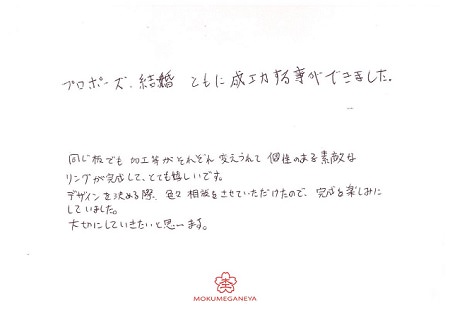 プロポーズ、結婚 ともに成功する事ができました。
同じ板でも 加工等がそれぞれ変えられて 個性のある素敵な
リングが完成して、とても嬉しいです。
デザインを決める際、色々相談をさせていただけたので、完成を楽しみに
していました。
大切にしていきたいと思います。
MOKUMEGANEYA